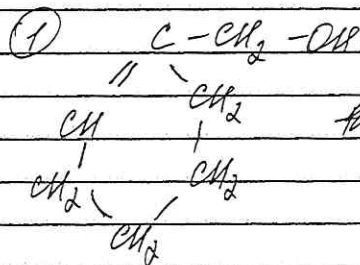 ① C - CH2 - OH
CH CH2
CH2 CH2
CH2